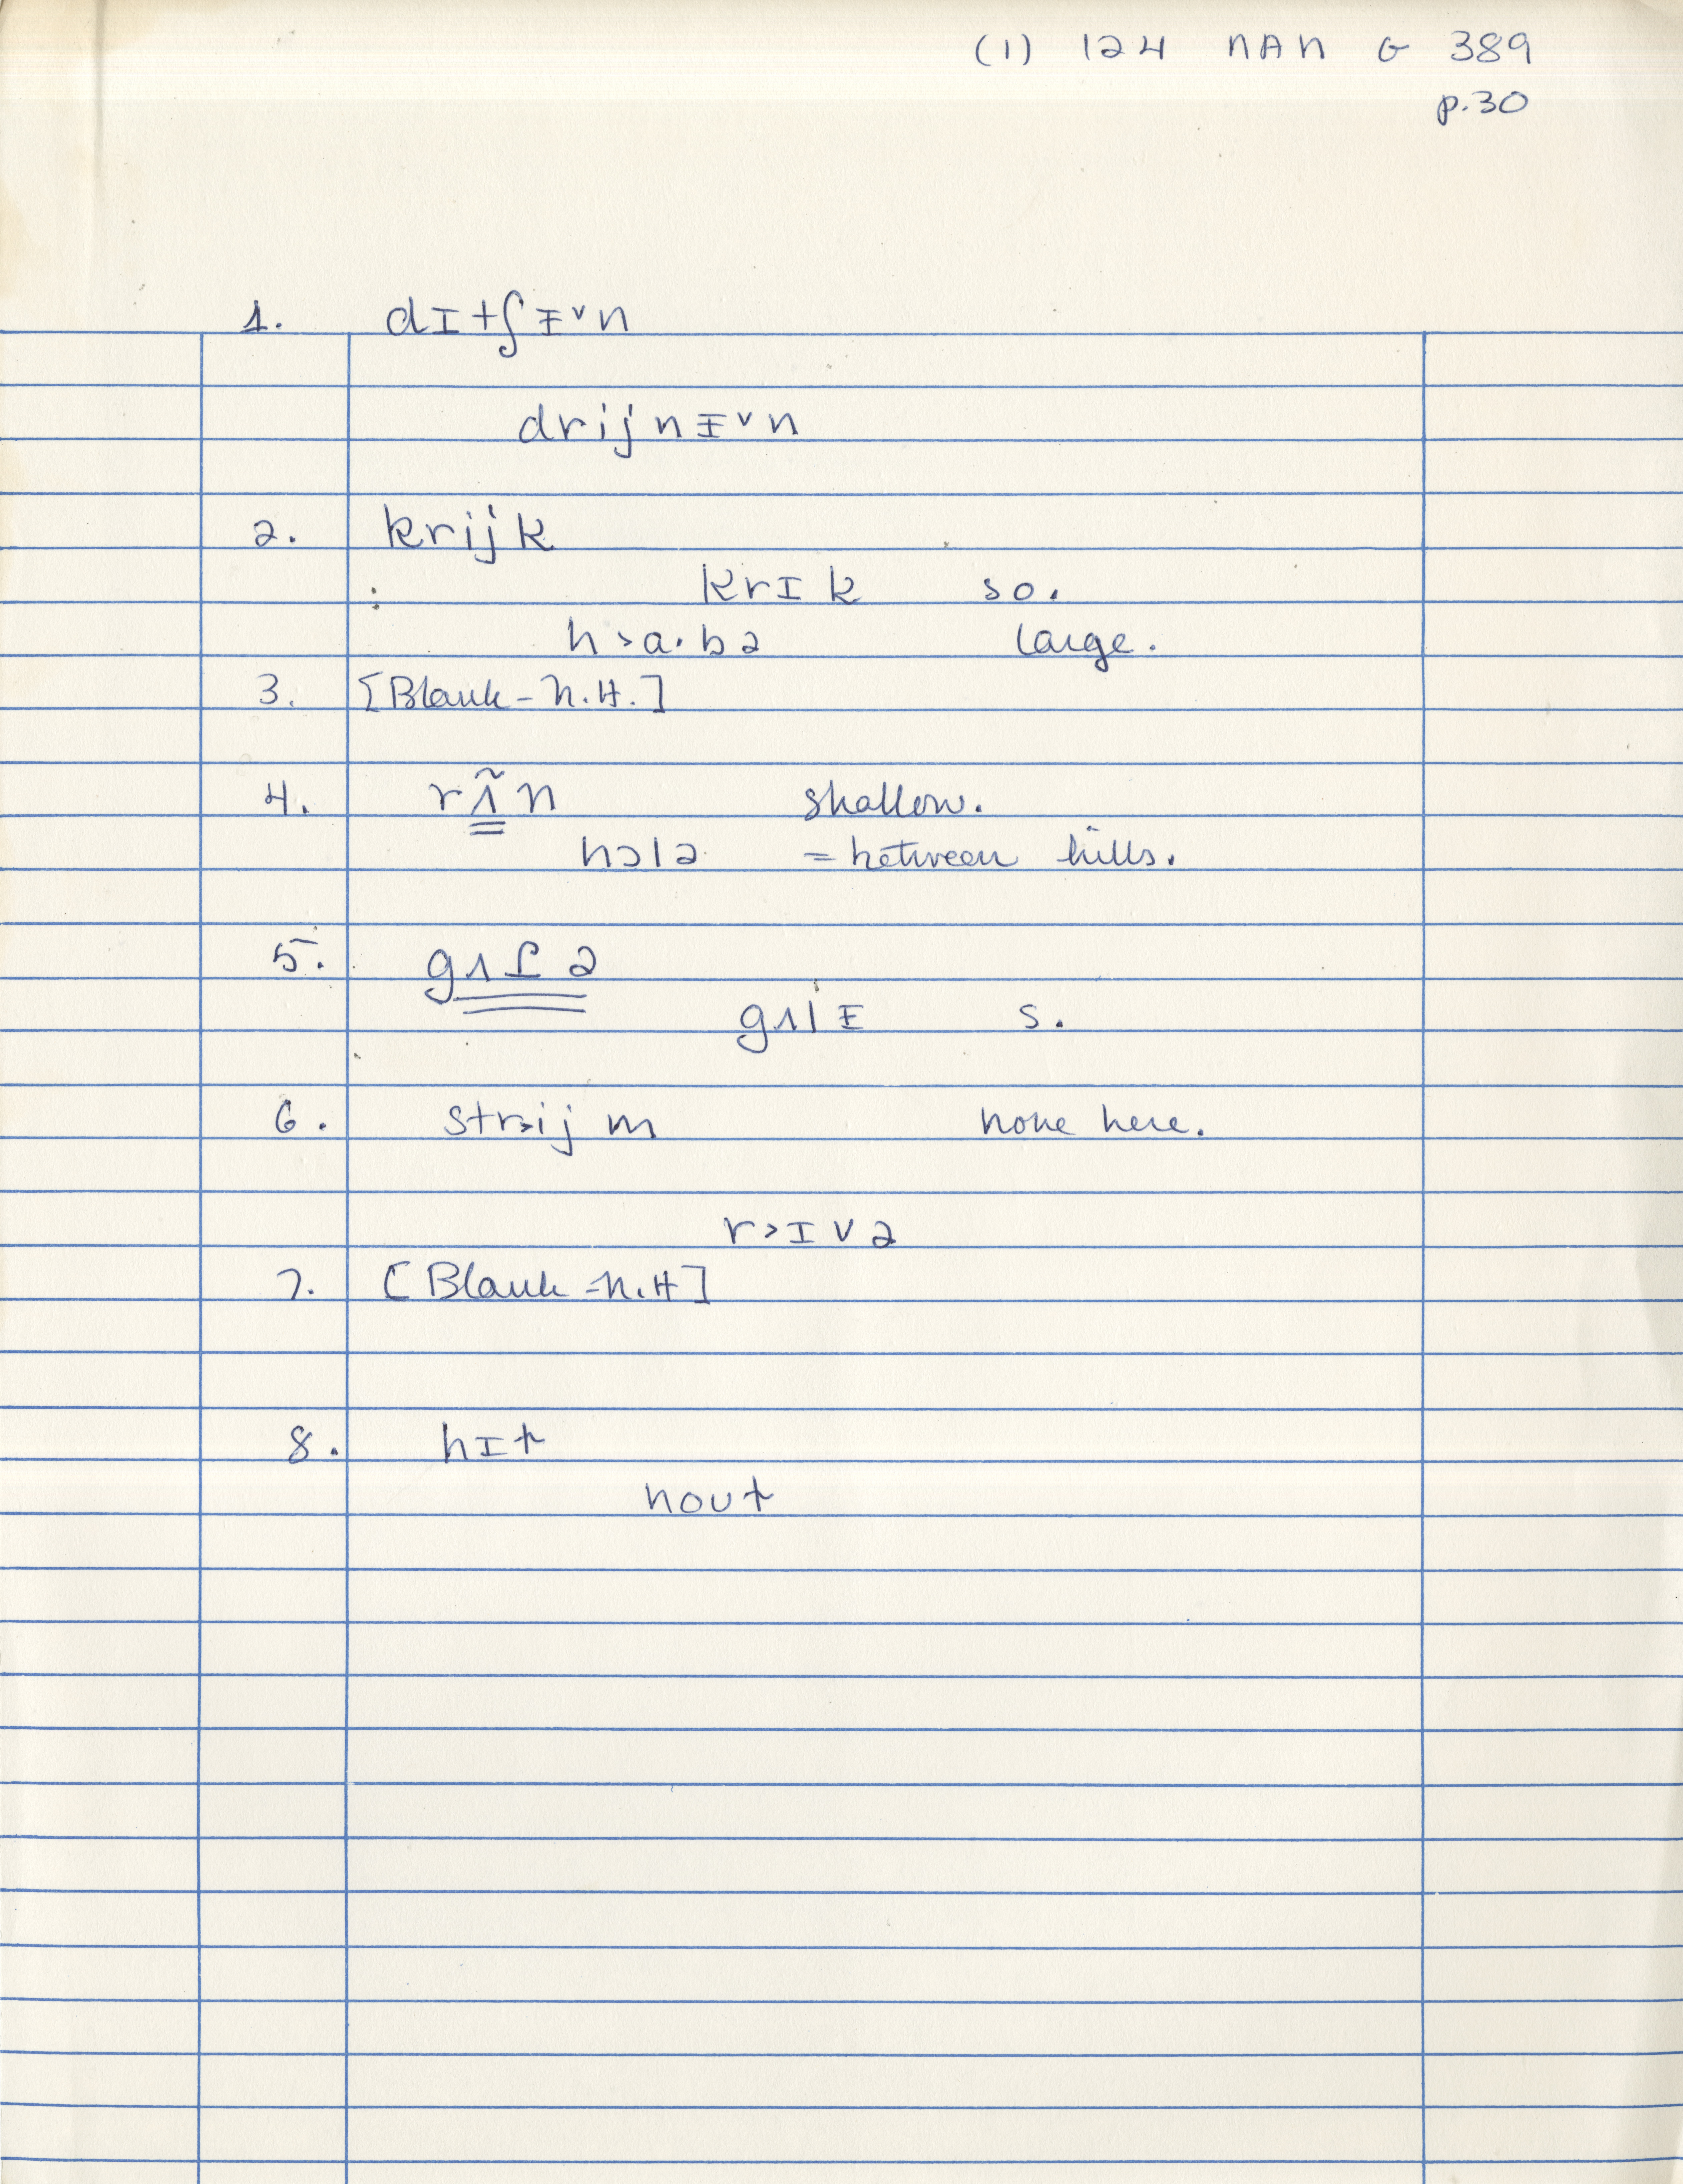 (1) 124 NAN G 389
p.30
1. dɪtʃᵻ˅n
drijnᵻ˅n
2. krijk
krɪk so.
h>a·bə large.
3. [Blank - N.H.]
4. rʌ̃n shallow.
hɔlə = between hills.
5. gʌlə
gʌlᵻ s.
6. str>ij m none here.
r>ɪvə
7. [Blank - N.H]
8. hɪt
nout